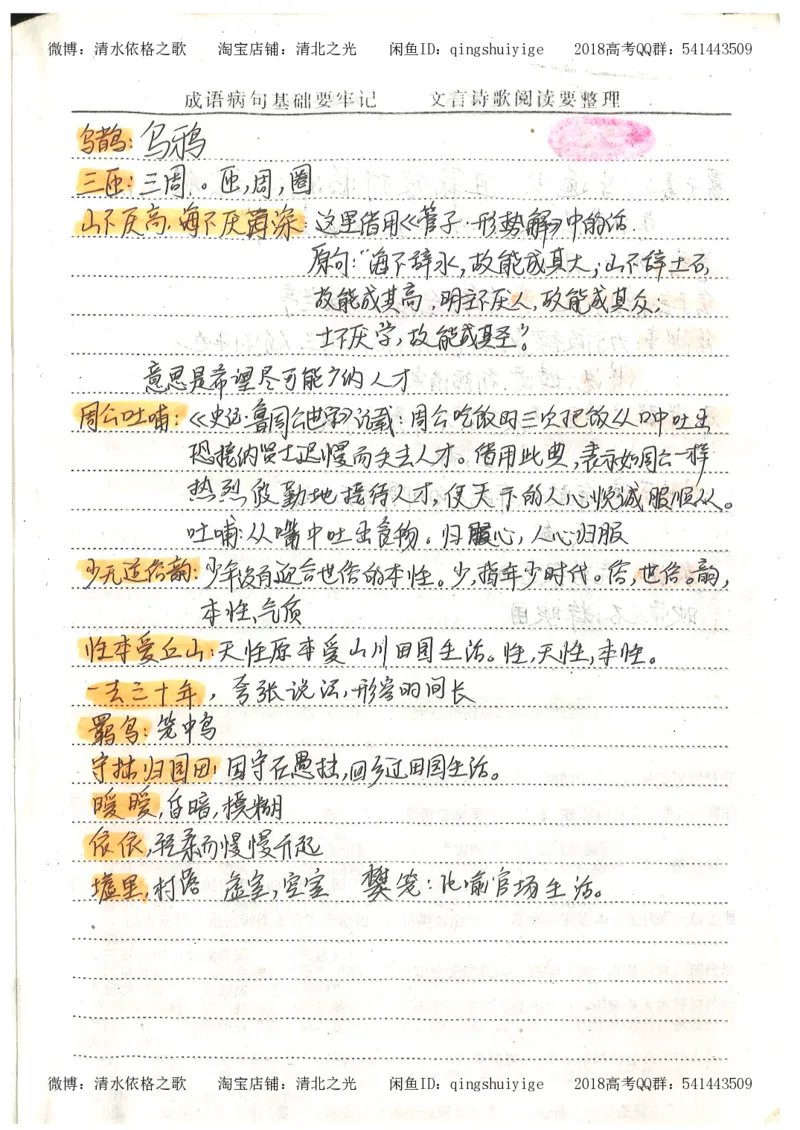 微博：清水依格之歌 淘宝店铺：清北之光 闲鱼ID：qingshuiyige 2018高考QQ群：541443509
成语病句基础要牢记 文言诗歌阅读要整理
乌鹊：乌鸦
三匝：三周。匝，周，圈
山不厌高，海不厌深：这里借用《管子·形势解》中的话.
原句："海不辞水，故能成其大；山不辞土石
故能成其高 明主不厌人，故能成其众；
士不厌学，故能成其圣"。
意思是希望尽可能多纳人才
周公吐哺：《史记·鲁周公世家》记载：周公吃饭时三次把饭从口中吐出
恐接纳贤士迟慢而失去人才。借用此典，表示如周公一样
热烈殷勤地接待人才，使天下的人心悦诚服归从。
吐哺：从嘴中吐出食物。归心，人心归服
少无适俗韵：少年没有迎合世俗的本性。少，指年少时代。俗，世俗。韵，
本性、气质
性本爱丘山：天性原本爱山川田园生活。性，天性，本性。
一去三十年，夸张说法，形容时间长
羁鸟：笼中鸟
守拙归园田：固守在愚拙，回乡过田园生活。
暧暧，昏暗，模糊
依依，轻柔而慢慢升起
墟里，村落 虚室，空室 樊笼：比喻官场生活。
微博：清水依格之歌 淘宝店铺：清北之光 闲鱼ID：qingshuiyige 2018高考QQ群：541443509